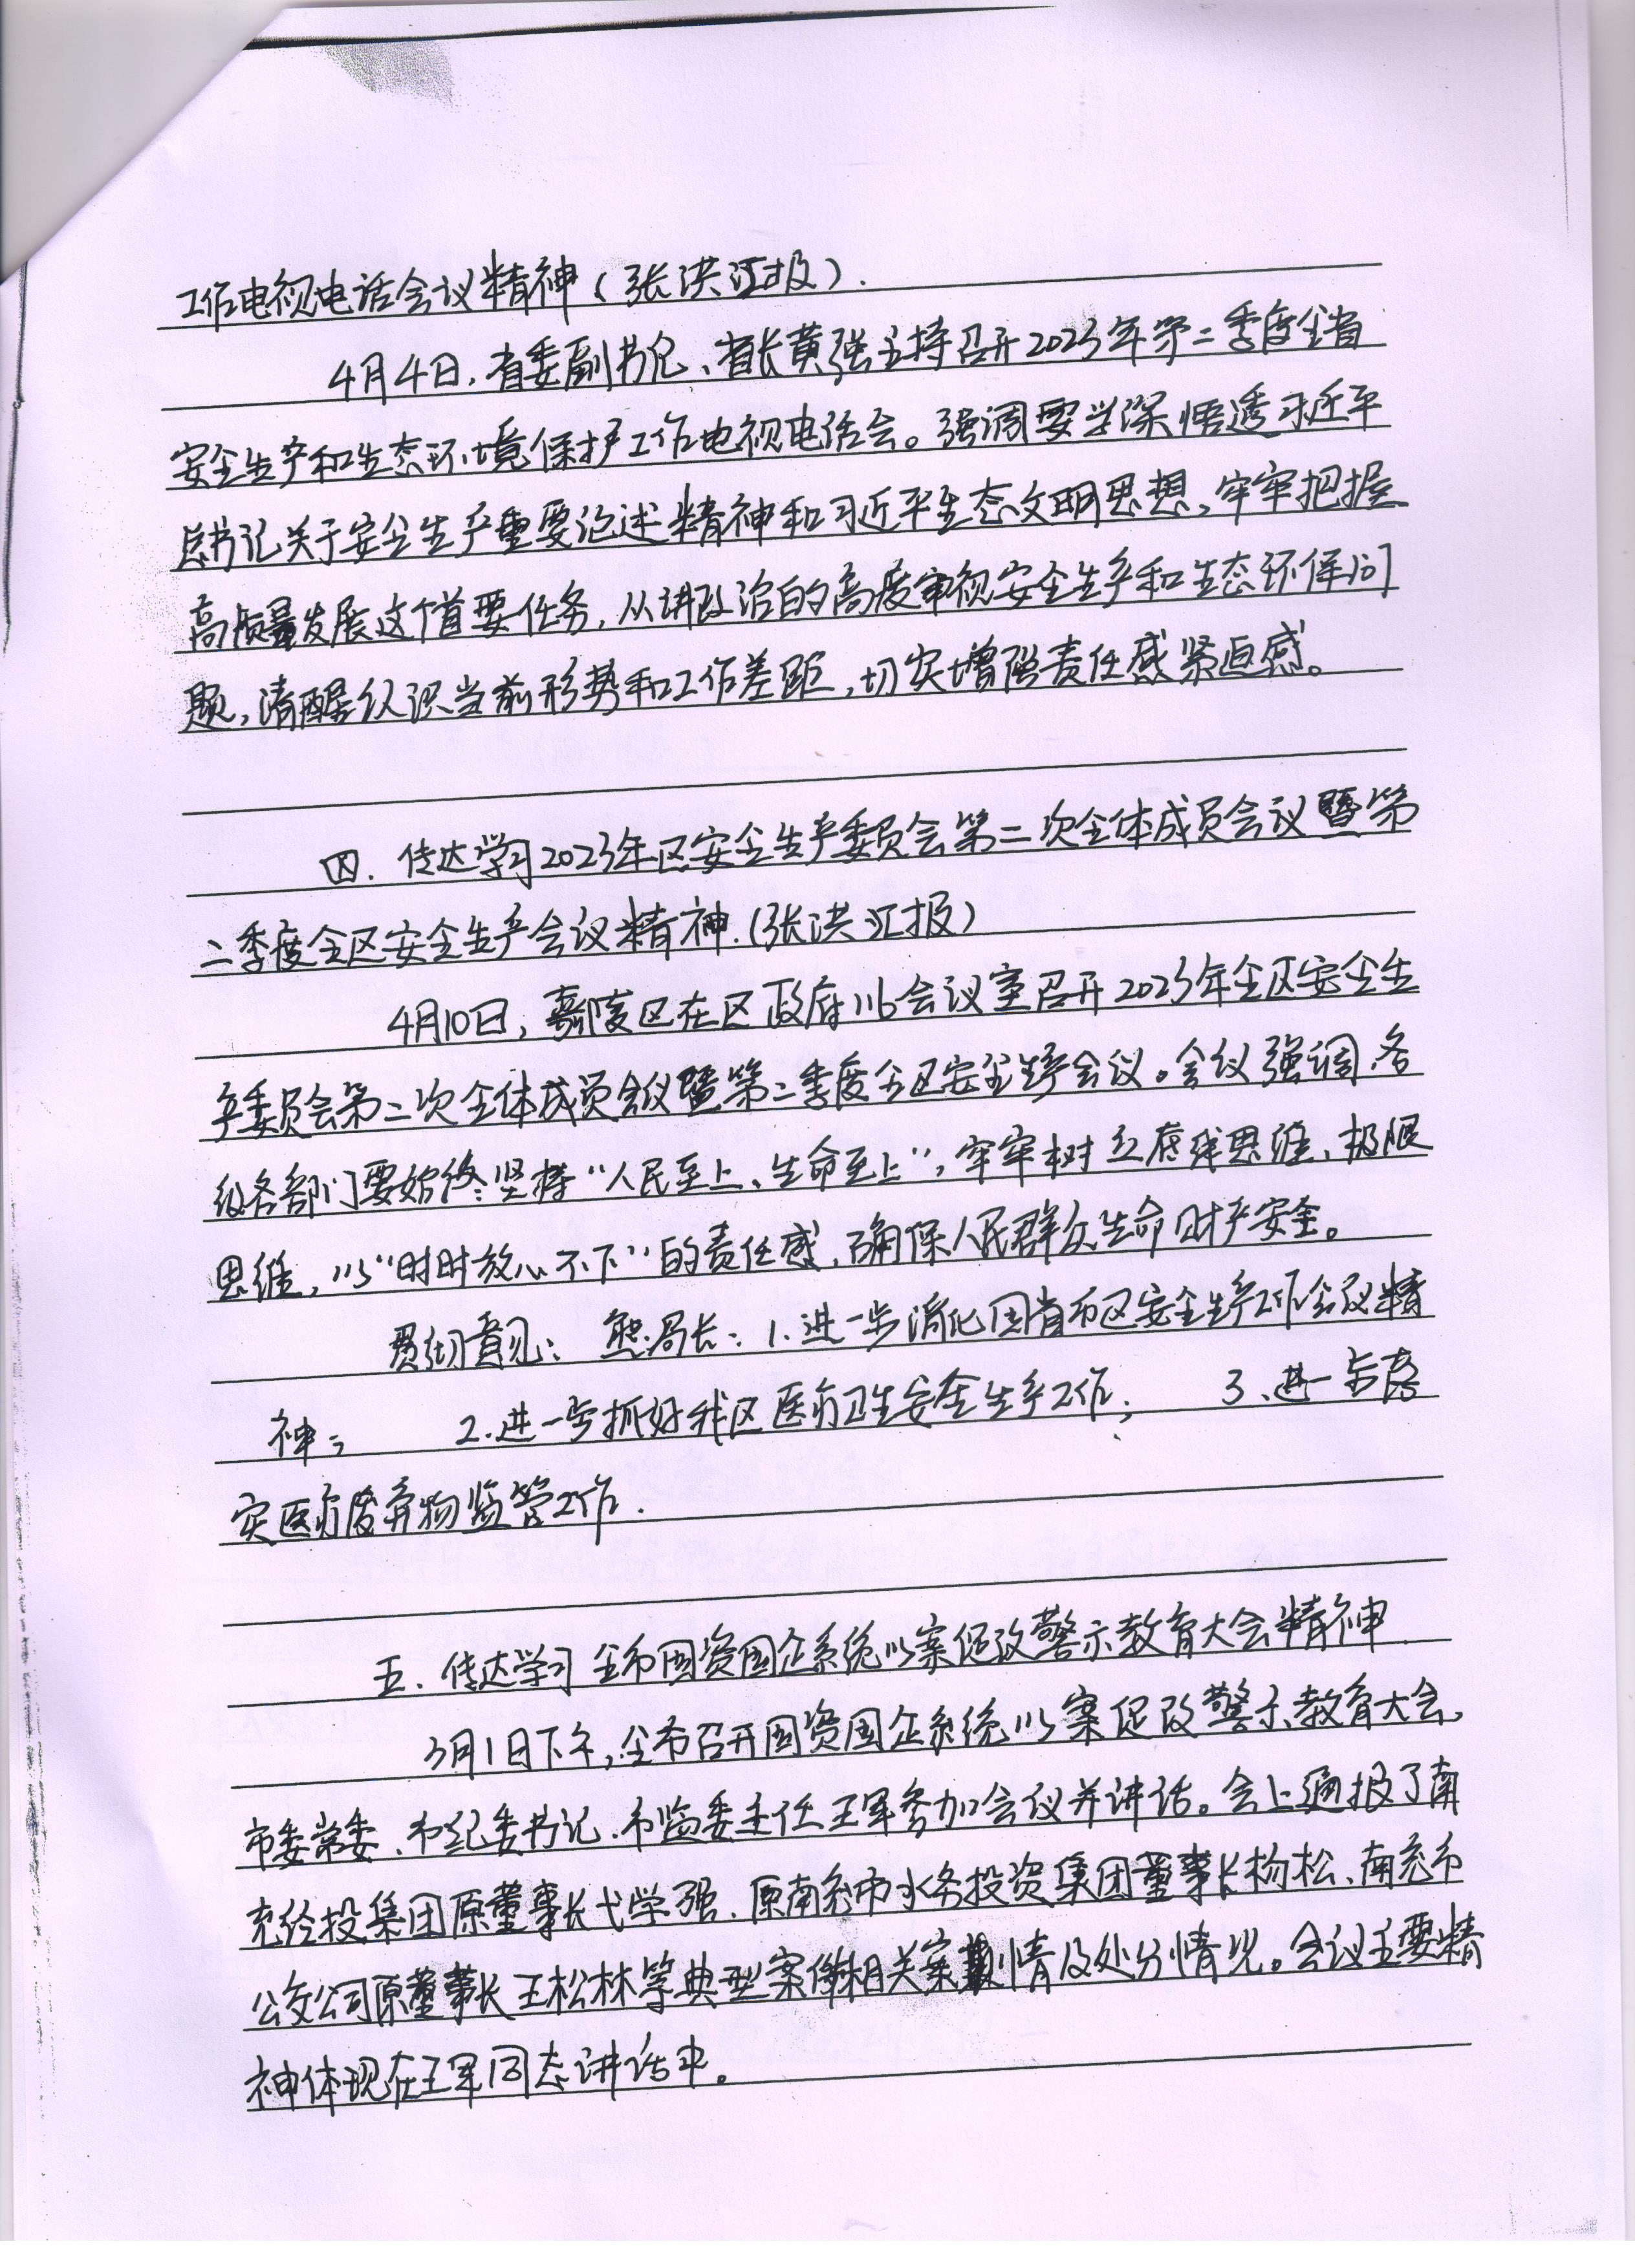 工作电视电话会议精神（张洪汇报）.
4月4日，省委副书记、省长黄强主持召开2023年第二季度全省
安全生产和生态环境保护工作电视电话会。强调要学深悟透习近平
总书记关于安全生产重要论述精神和习近平生态文明思想，牢牢把握
高质量发展这个首要任务，从讲政治的高度审视安全生产和生态环保问
题，清醒认识当前形势和工作差距，切实增强责任感紧迫感。
四. 传达学习2023年区安全生产委员会第二次全体成员会议暨第
二季度全区安全生产会议精神.（张洪汇报）
4月10日，嘉陵区在区政府116会议室召开2023年全区安全生
产委员会第二次全体成员会议暨第二季度全区安全生产会议。会议强调，各
级各部门要始终坚持“人民至上、生命至上”，牢牢树立底线思维、极限
思维，以“时时放心不下”的责任感，确保人民群众生命财产安全。
贯彻意见：熊局长：1.进一步消化国省市区安全生产工作会议精
神； 2.进一步抓好我区医疗卫生安全生产工作； 3、进一步落
实医疗废弃物监管工作.
五. 传达学习全市国资国企系统以案促改警示教育大会精神
3月1日下午，全市召开国资国企系统以案促改警示教育大会，
市委常委、市纪委书记、市监委主任王军参加会议并讲话。会上通报了南
充经投集团原董事长弋学强、原南充市水务投资集团董事长杨松、南充市
公交公司原董事长王松林等典型案件相关案情及处分情况。会议主要精
神体现在王军同志讲话中。